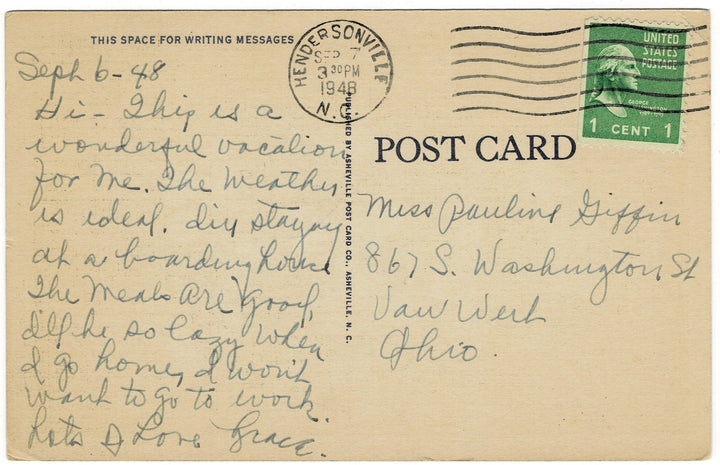 THIS SPACE FOR WRITING MESSAGES
Sept 6-48
Hi - This is a
wonderful vacation
for me. The weather
is ideal. I'm staying
at a boarding house
The meals are good.
I'll be so lazy when
I go home, I won't
want to go to work.
Lots of Love Grace.
PUBLISHED BY ASHEVILLE POST CARD CO., ASHEVILLE, N. C.
HENDERSONVILLE
SEP 7
3 30 PM
1948
N.C.
UNITED
STATES
POSTAGE
GEORGE
WASHINGTON
1 CENT 1
POST CARD
Miss Pauline Giffin
867 S. Washington St
Van Wert
Ohio.